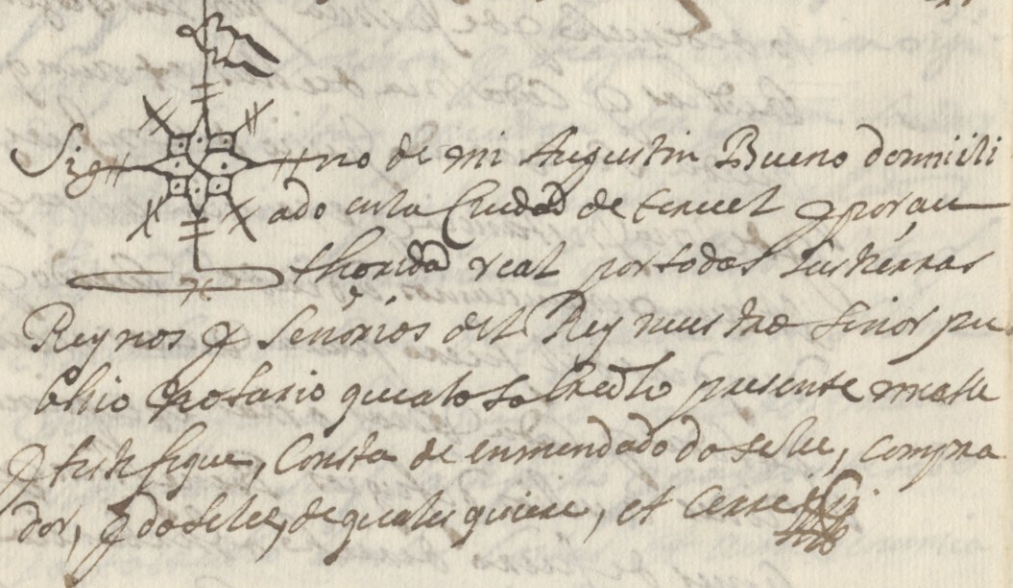 Sig no de mi Augustin Bueno domiili
ado en la Ciudad de teruel y por au
thoridad real por todas sus tierras
Reynos y señorios del Rey nuestro señor pu
blico Notario que a lo sobredicho presente me halle
y testifique, Consta de enmendado do se lee, compra
dor, y do se lee, de quales quiere, et Cerre